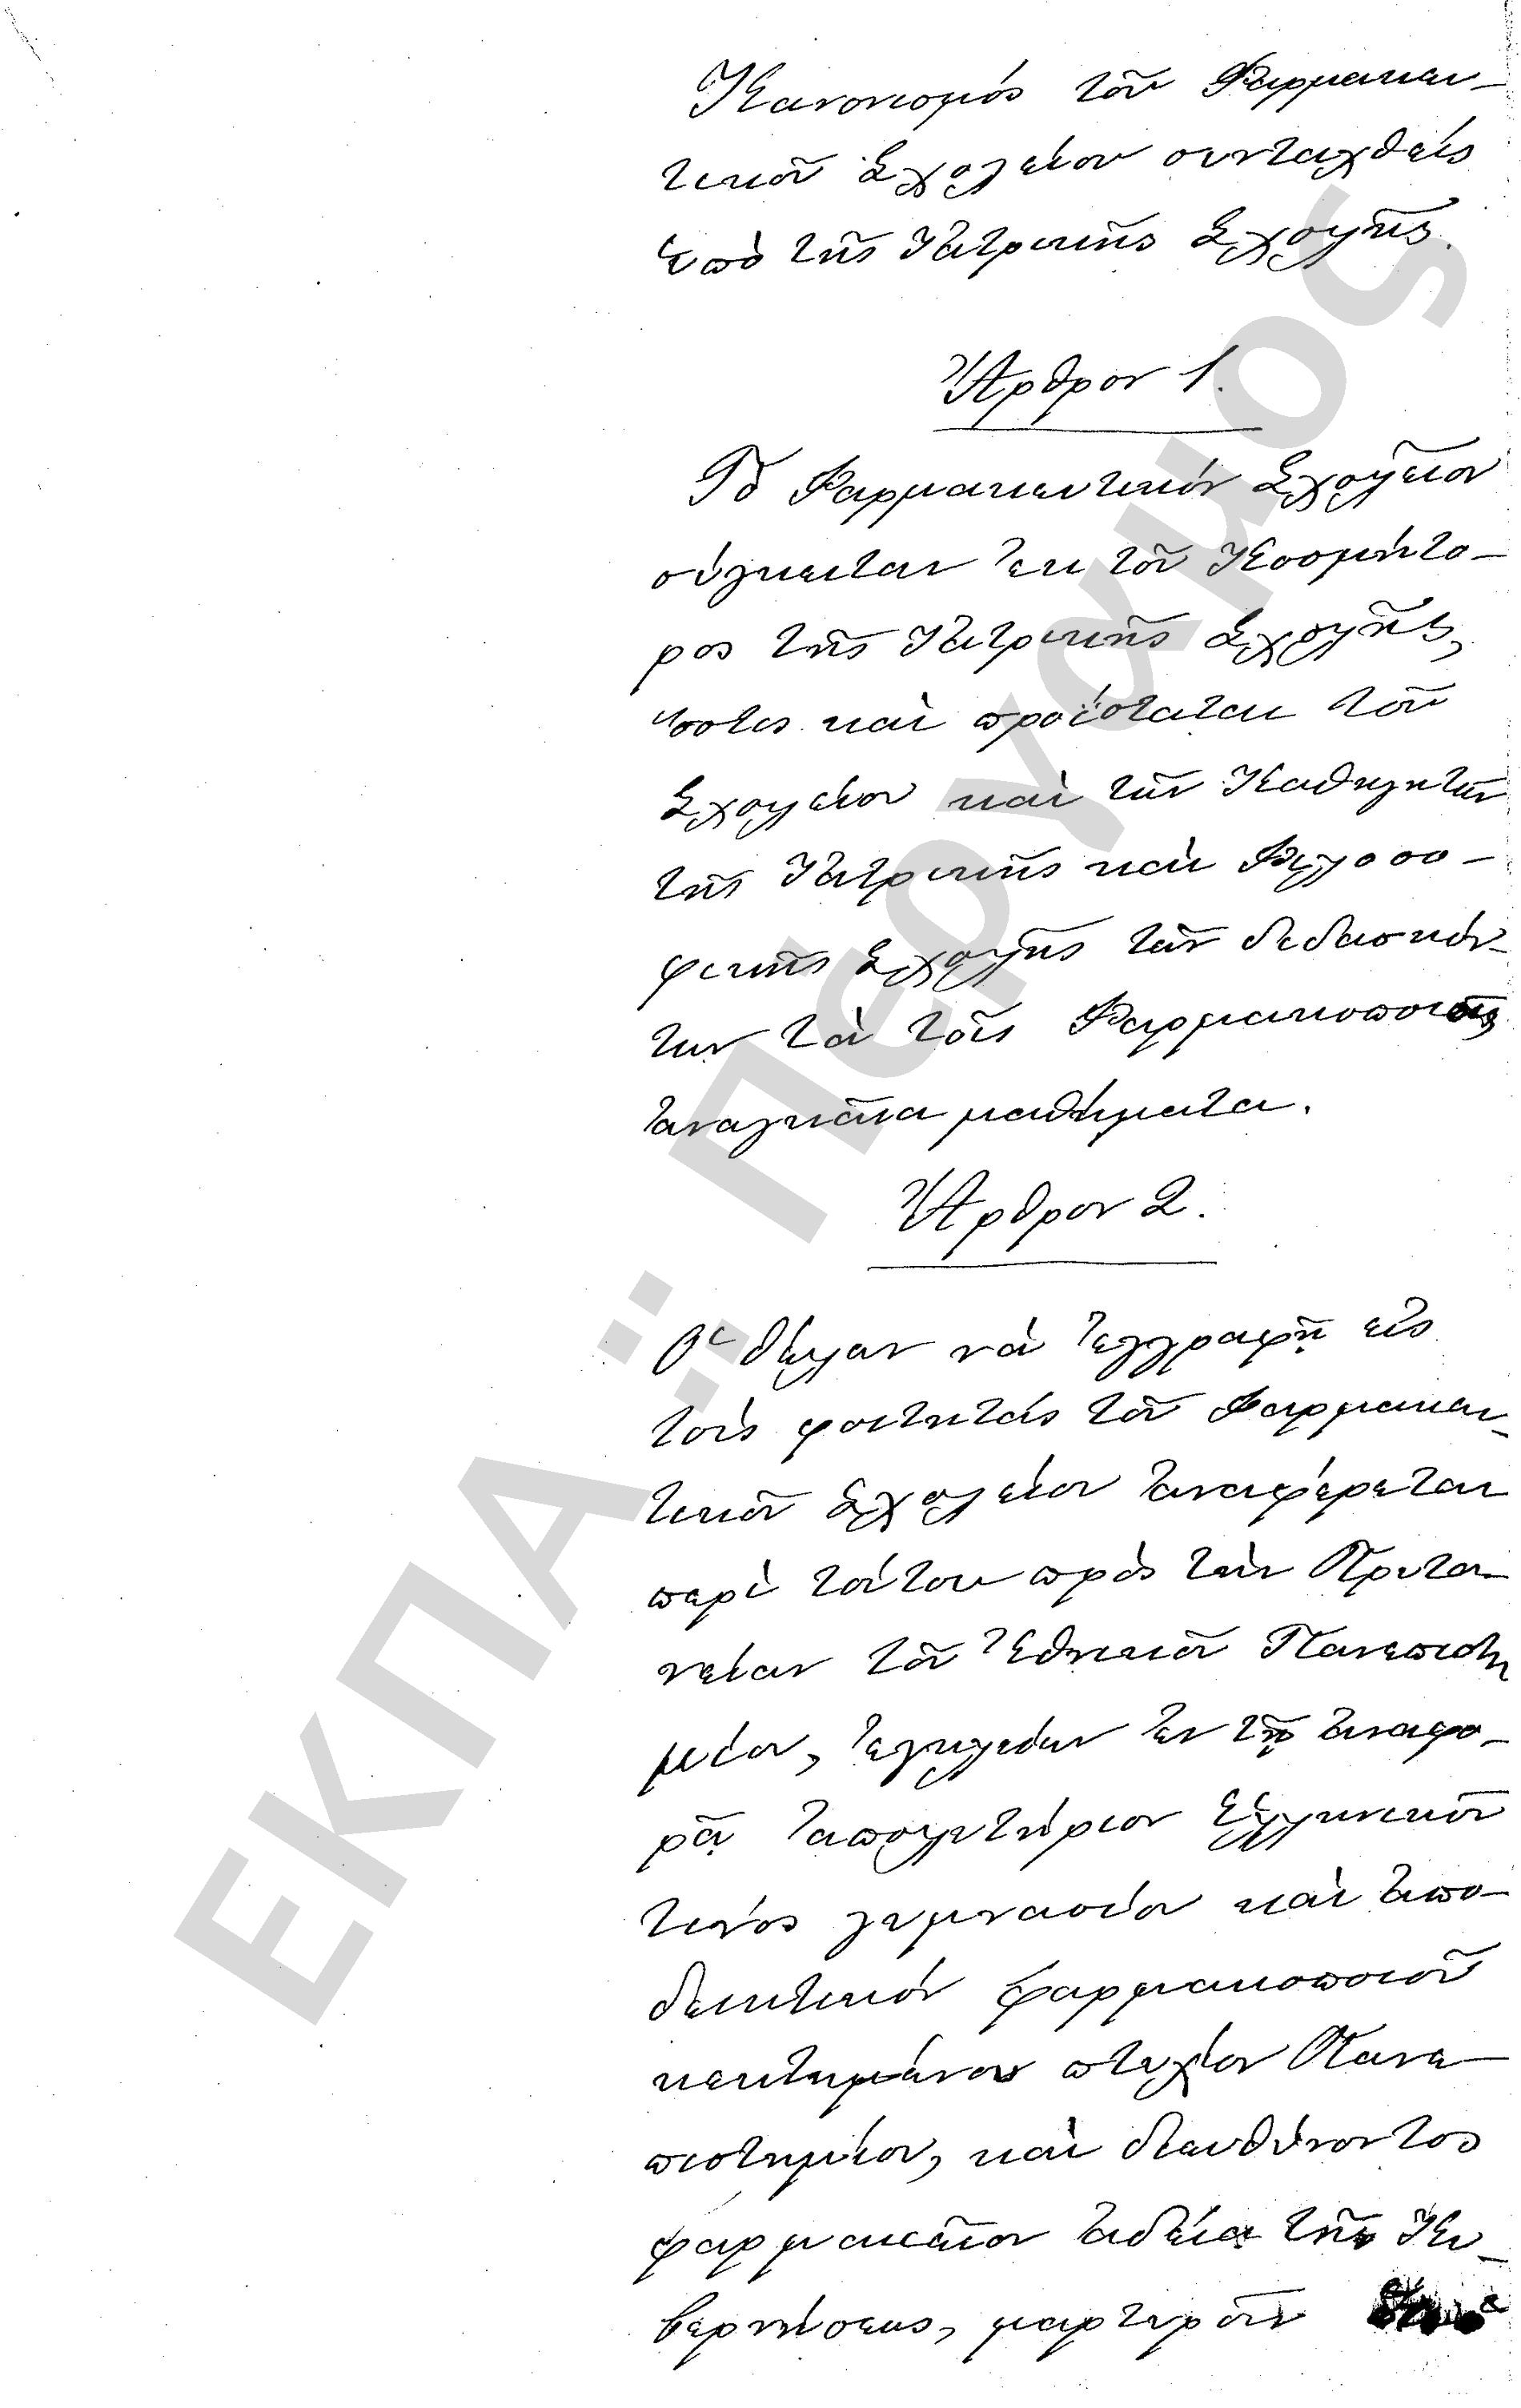 Κανονισμός τοῦ Φαρμακευ-
τικοῦ Σχολείου συνταχθείς
ὑπὸ τῆς Ἰατρικῆς Σχολῆς.
Ἄρθρον 1.
Τὸ Φαρμακευτικόν Σχολεῖον
σύγκειται ἐκ τοῦ Κοσμήτο-
ρος τῆς Ἰατρικῆς Σχολῆς,
ὅστις καὶ προΐσταται τοῦ
Σχολείου καὶ τῶν Καθηγητῶν
τῆς Ἰατρικῆς καὶ Φιλοσο-
φικῆς Σχολῆς τῶν διδασκόν-
των τὰ τοῖς Φαρμακοποιοῖς
ἀναγκαῖα μαθήματα.
Ἄρθρον 2.
Ὁ θέλων νὰ ἐγγραφῇ εἰς
τοὺς φοιτητάς τοῦ Φαρμακευ-
τικοῦ Σχολείου ἀναφέρεται
περὶ τούτου πρὸς τὴν Πρυτα-
νείαν τοῦ Ἐθνικοῦ Πανεπιστη
μίου, ἐγκλείων ἐν τῇ ἀναφο-
ρᾷ ἀπολυτήριον Ἑλληνικοῦ
τινός γυμνασίου καὶ ἀπο-
δεικτικόν φαρμακοποιοῦ
κεκτημένου πτυχίον Πανε-
πιστημίου, καὶ διευθύνοντος
φαρμακεῖον ἀδείᾳ τῆς Κυ-
βερνήσεως, μαρτυροῦν
ΕΚΠΑ: Πέργαμος